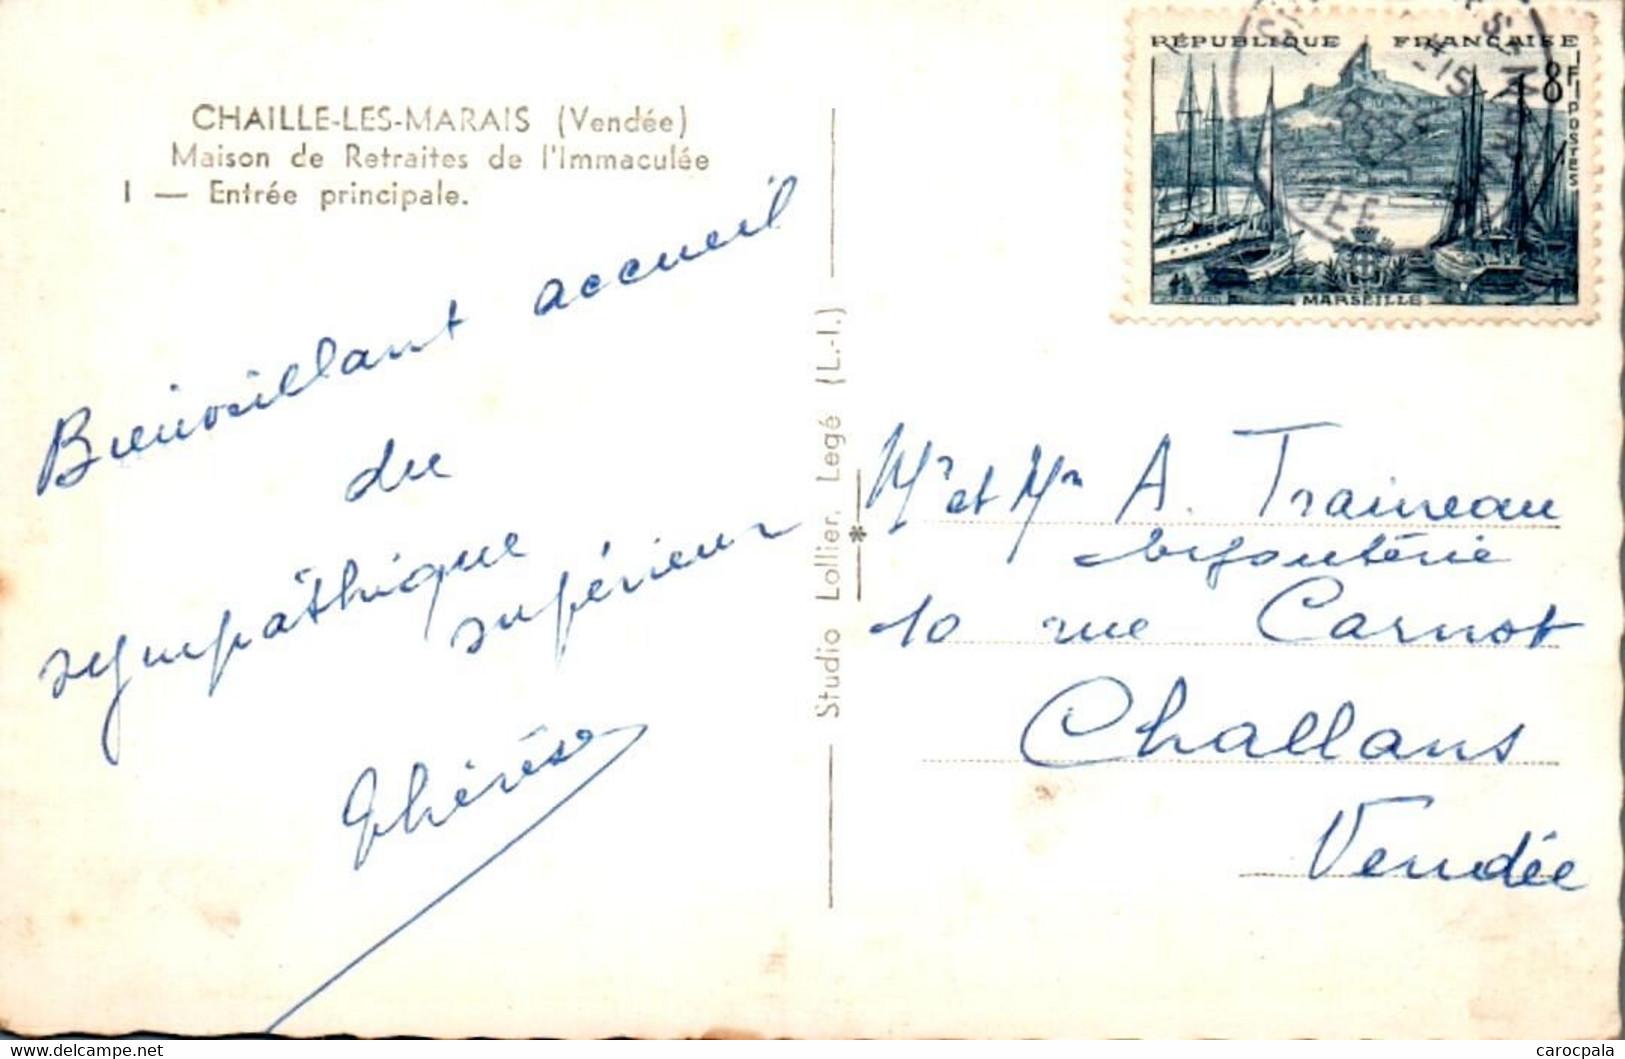 CHAILLE-LES-MARAIS (Vendée)
Maison de Retraites de l'Immaculée
I — Entrée principale.
Bienveillant accueil
du
sympathique
supérieur
Thérèse
Studio Lollier, Legé (L.-I.)
RÉPUBLIQUE FRANÇAISE
8F
POSTES
MARSEILLE
Mr et Mm A. Traineau
bijouterie
10 rue Carnot
Challans
Vendée
carocpala